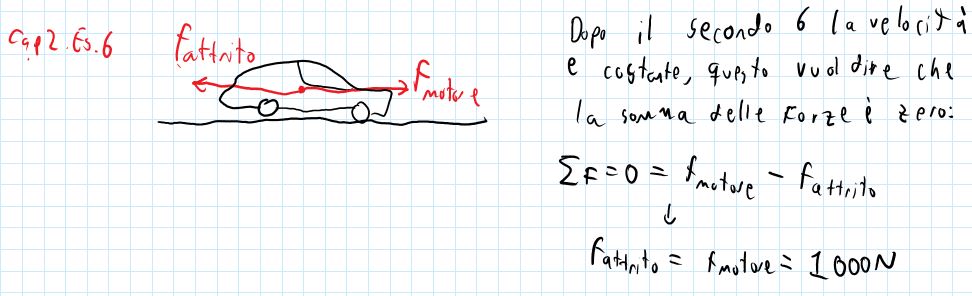 Cap2. Es. 6
Fattrito
Fmotore
Dopo il secondo 6 la velocità
e costante, questo vuol dire che
la somma delle Forze è zero:
ΣF = 0 = Fmotore - Fattrito
↓
Fattrito = Fmotore = 1000N